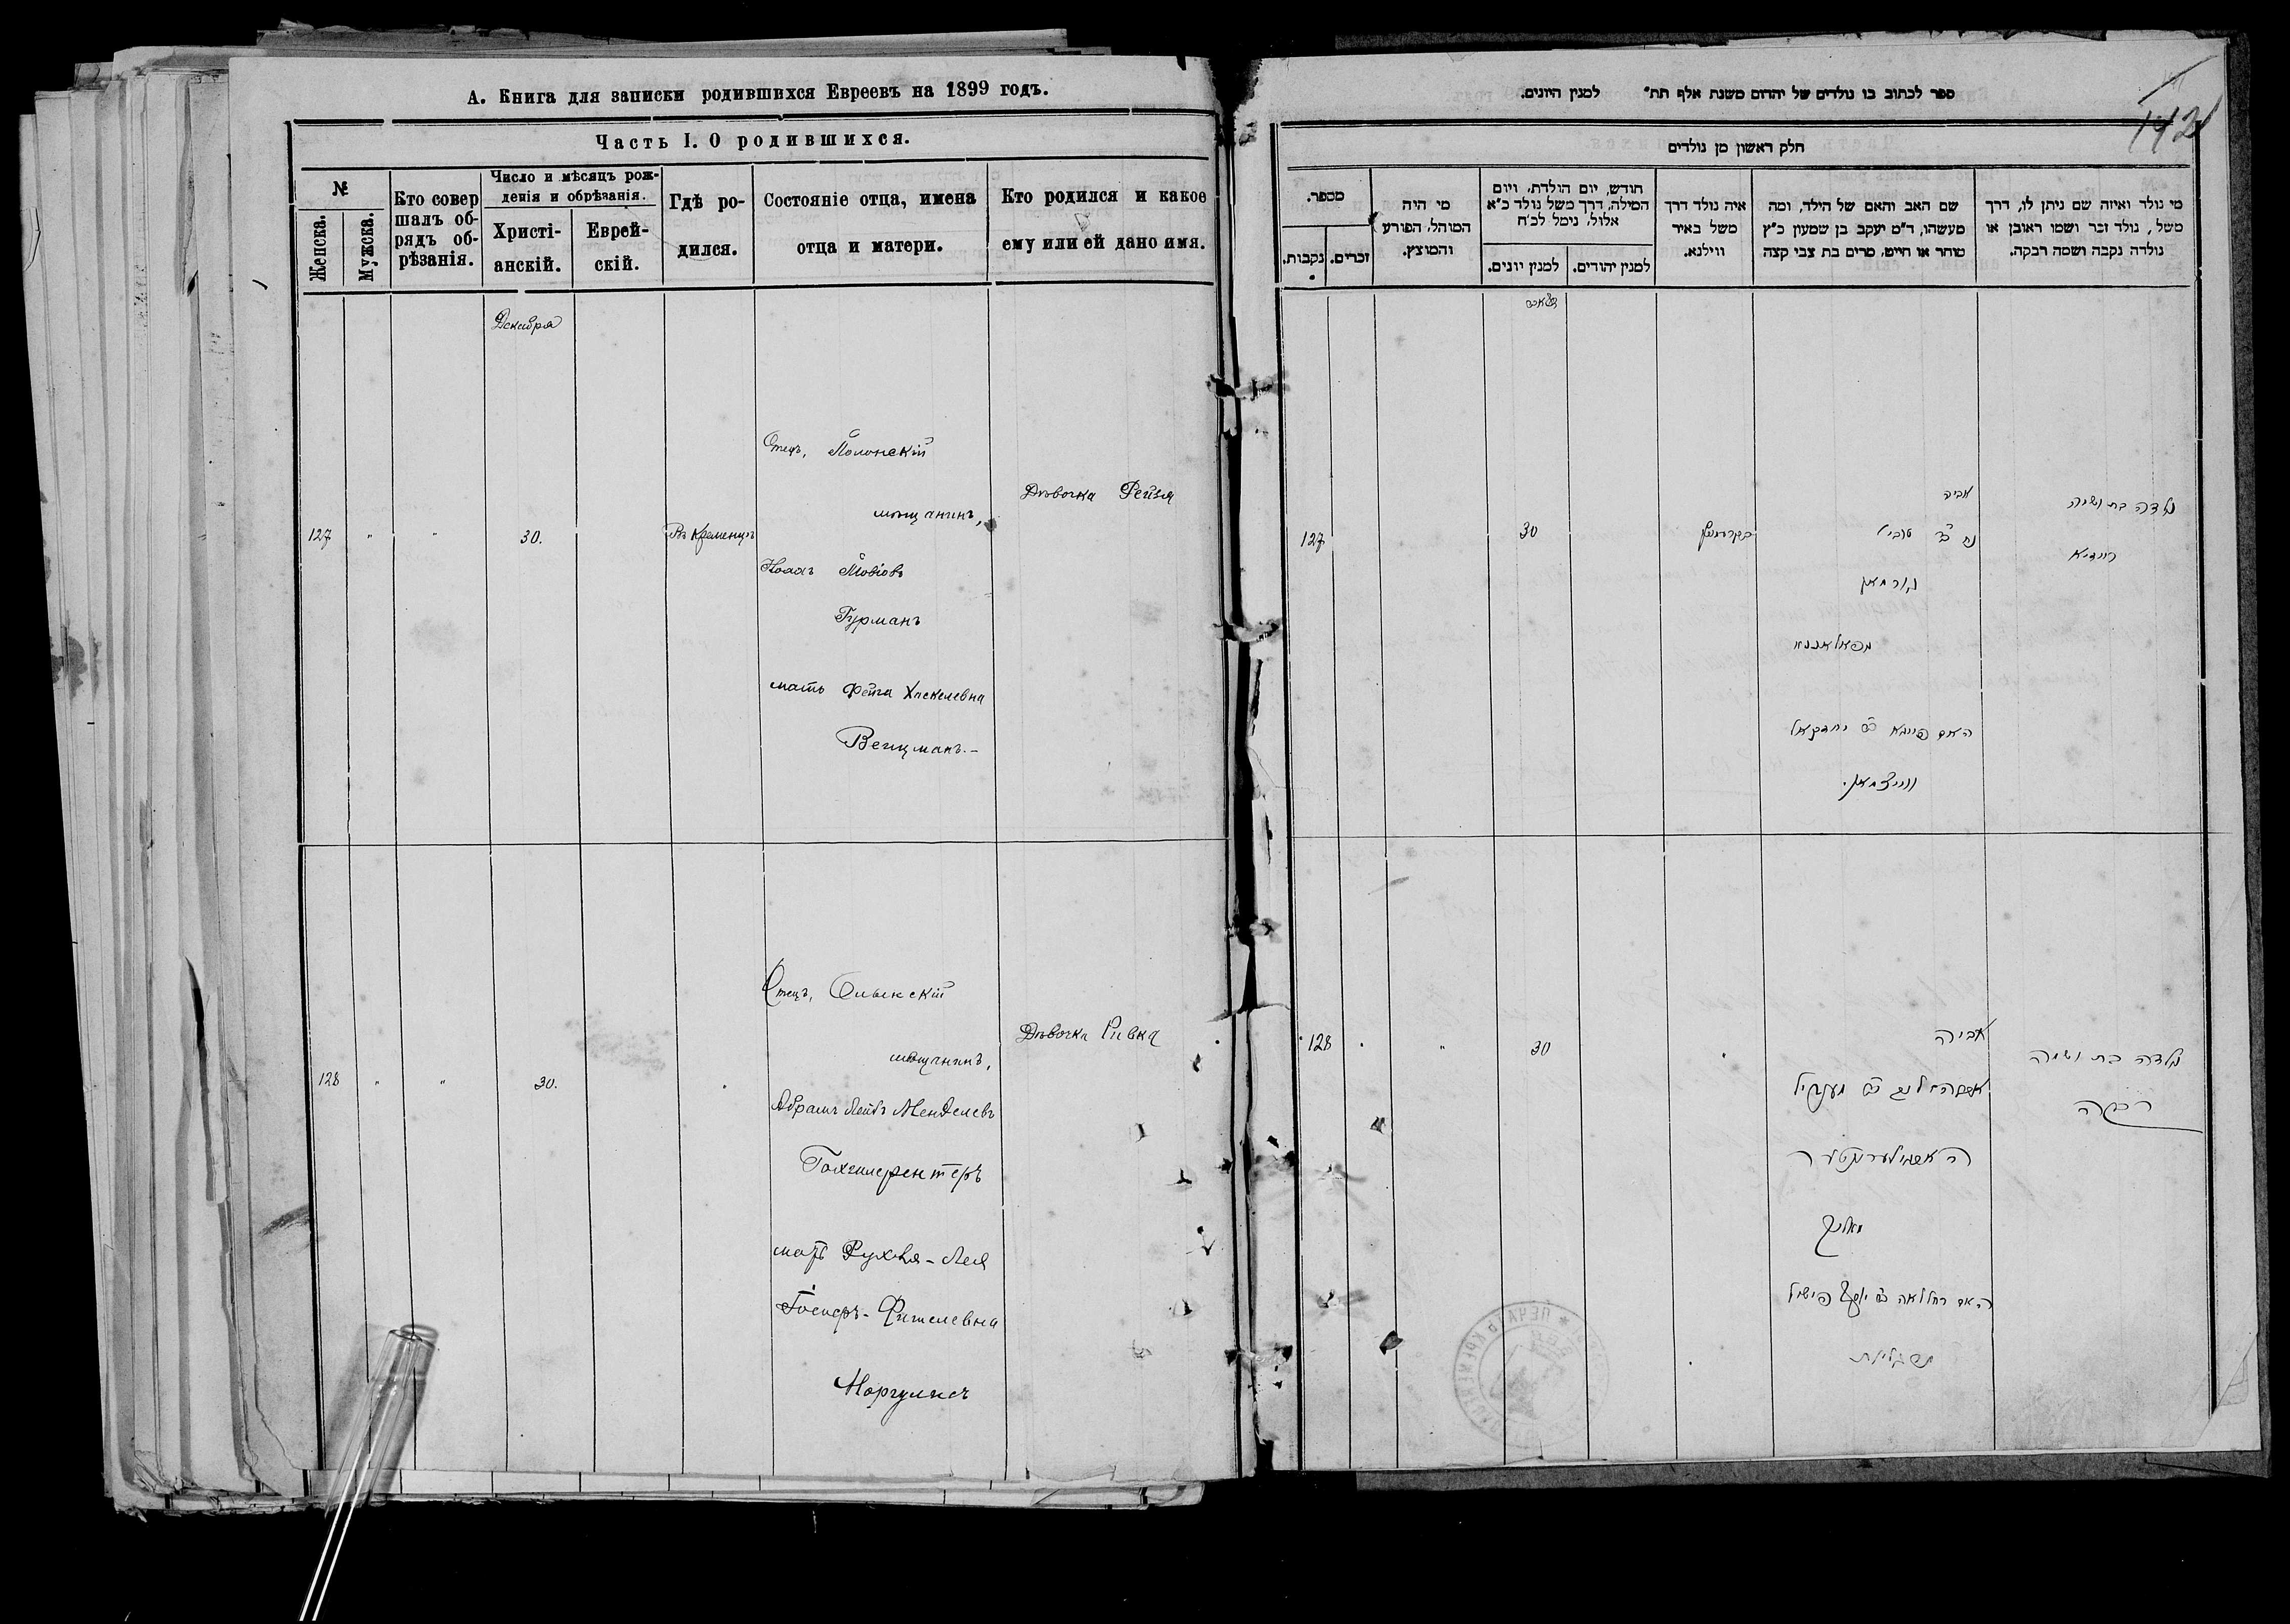 А. Книга для записки родившихся Евреевъ на 1899 годъ.
Часть I. О родившихся.
№
Женска.
Мужска.
Кто совер
шалъ об-
рядъ об-
рѣзанія.
Число и мѣсяцъ рож-
денія и обрѣзанія.
Христі-
анскій.
Еврей-
скій.
Гдѣ ро-
дился.
Состояніе отца, имена
отца и матери.
Кто родился и какое
ему или ей дано имя.
Декабря
127 " " 30.
Въ Кременцѣ
Отецъ, Полонскій
мѣщанинъ,
Товіовъ
Гурманъ
мать Фейга Хаскелевна
Вейцманъ.-
Дѣвочка Рейзя
128 " " 30. "
Отецъ, Олыкскій
мѣщанинъ,
Абрамъ Лейбъ Менделевъ
мать Рухля-Лея
Фишелевна
Моргулисъ
Дѣвочка Ривка
ספר לכתוב בו נולדים של יהדום משנת אלף תת" למנין היונים.
142
חלק ראשון מן נולדים
מספר.
נקבות.
זכרים.
מי היה
המוהל, הפורע
והמוצץ.
חודש, יום הולדת, ויום
המילה, דרך משל נולד כ"א
אלול, נימל לכ"ח
למנין יונים.
למנין יהודים.
איה נולד דרך
משל באיר
ווילנא.
שם האב והאם של הילד, ומה
מעשהו, ד"מ יעקב בן שמעון כ"ץ
סוחר או חייט, מרים בת צבי קצה
מי נולד ואיזה שם ניתן לו, דרך
משל, נולד זכר ושמו ראובן או
נולדה נקבה ושמה רבקה.
127
30
אביה
נח ב"ר טובי'
גורמאן
האם פייגא ב"ר יחזקאל
ווייצמאן.
נולדה בת ושמה
רייזיא
128 " " 30 "
אביה
האם רחל לאה ב"ר יוסף פישיל
נולדה בת ושמה
רבקה